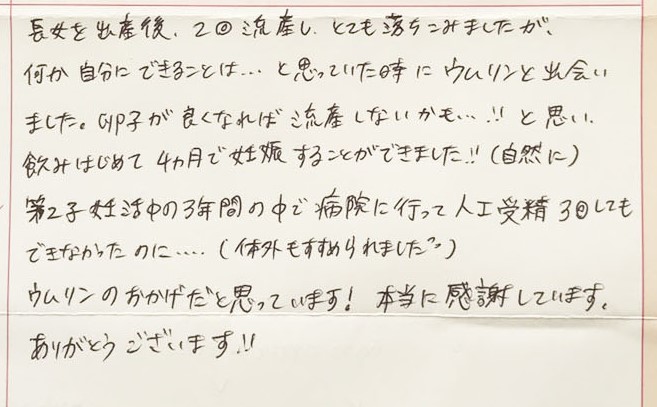 長女を出産後、2回流産し、とても落ちこみましたが、
何か自分にできることは…と思っていた時にウムリンと出会い
ました。卵子が良くなれば流産しないかも…!!と思い、
飲みはじめて4ヵ月で妊娠することができました!!(自然に)
第2子妊活中の3年間の中で病院に行って人工受精3回しても
できなかったのに……(体外もすすめられました💦)
ウムリンのおかげだと思っています!本当に感謝しています。
ありがとうございます!!